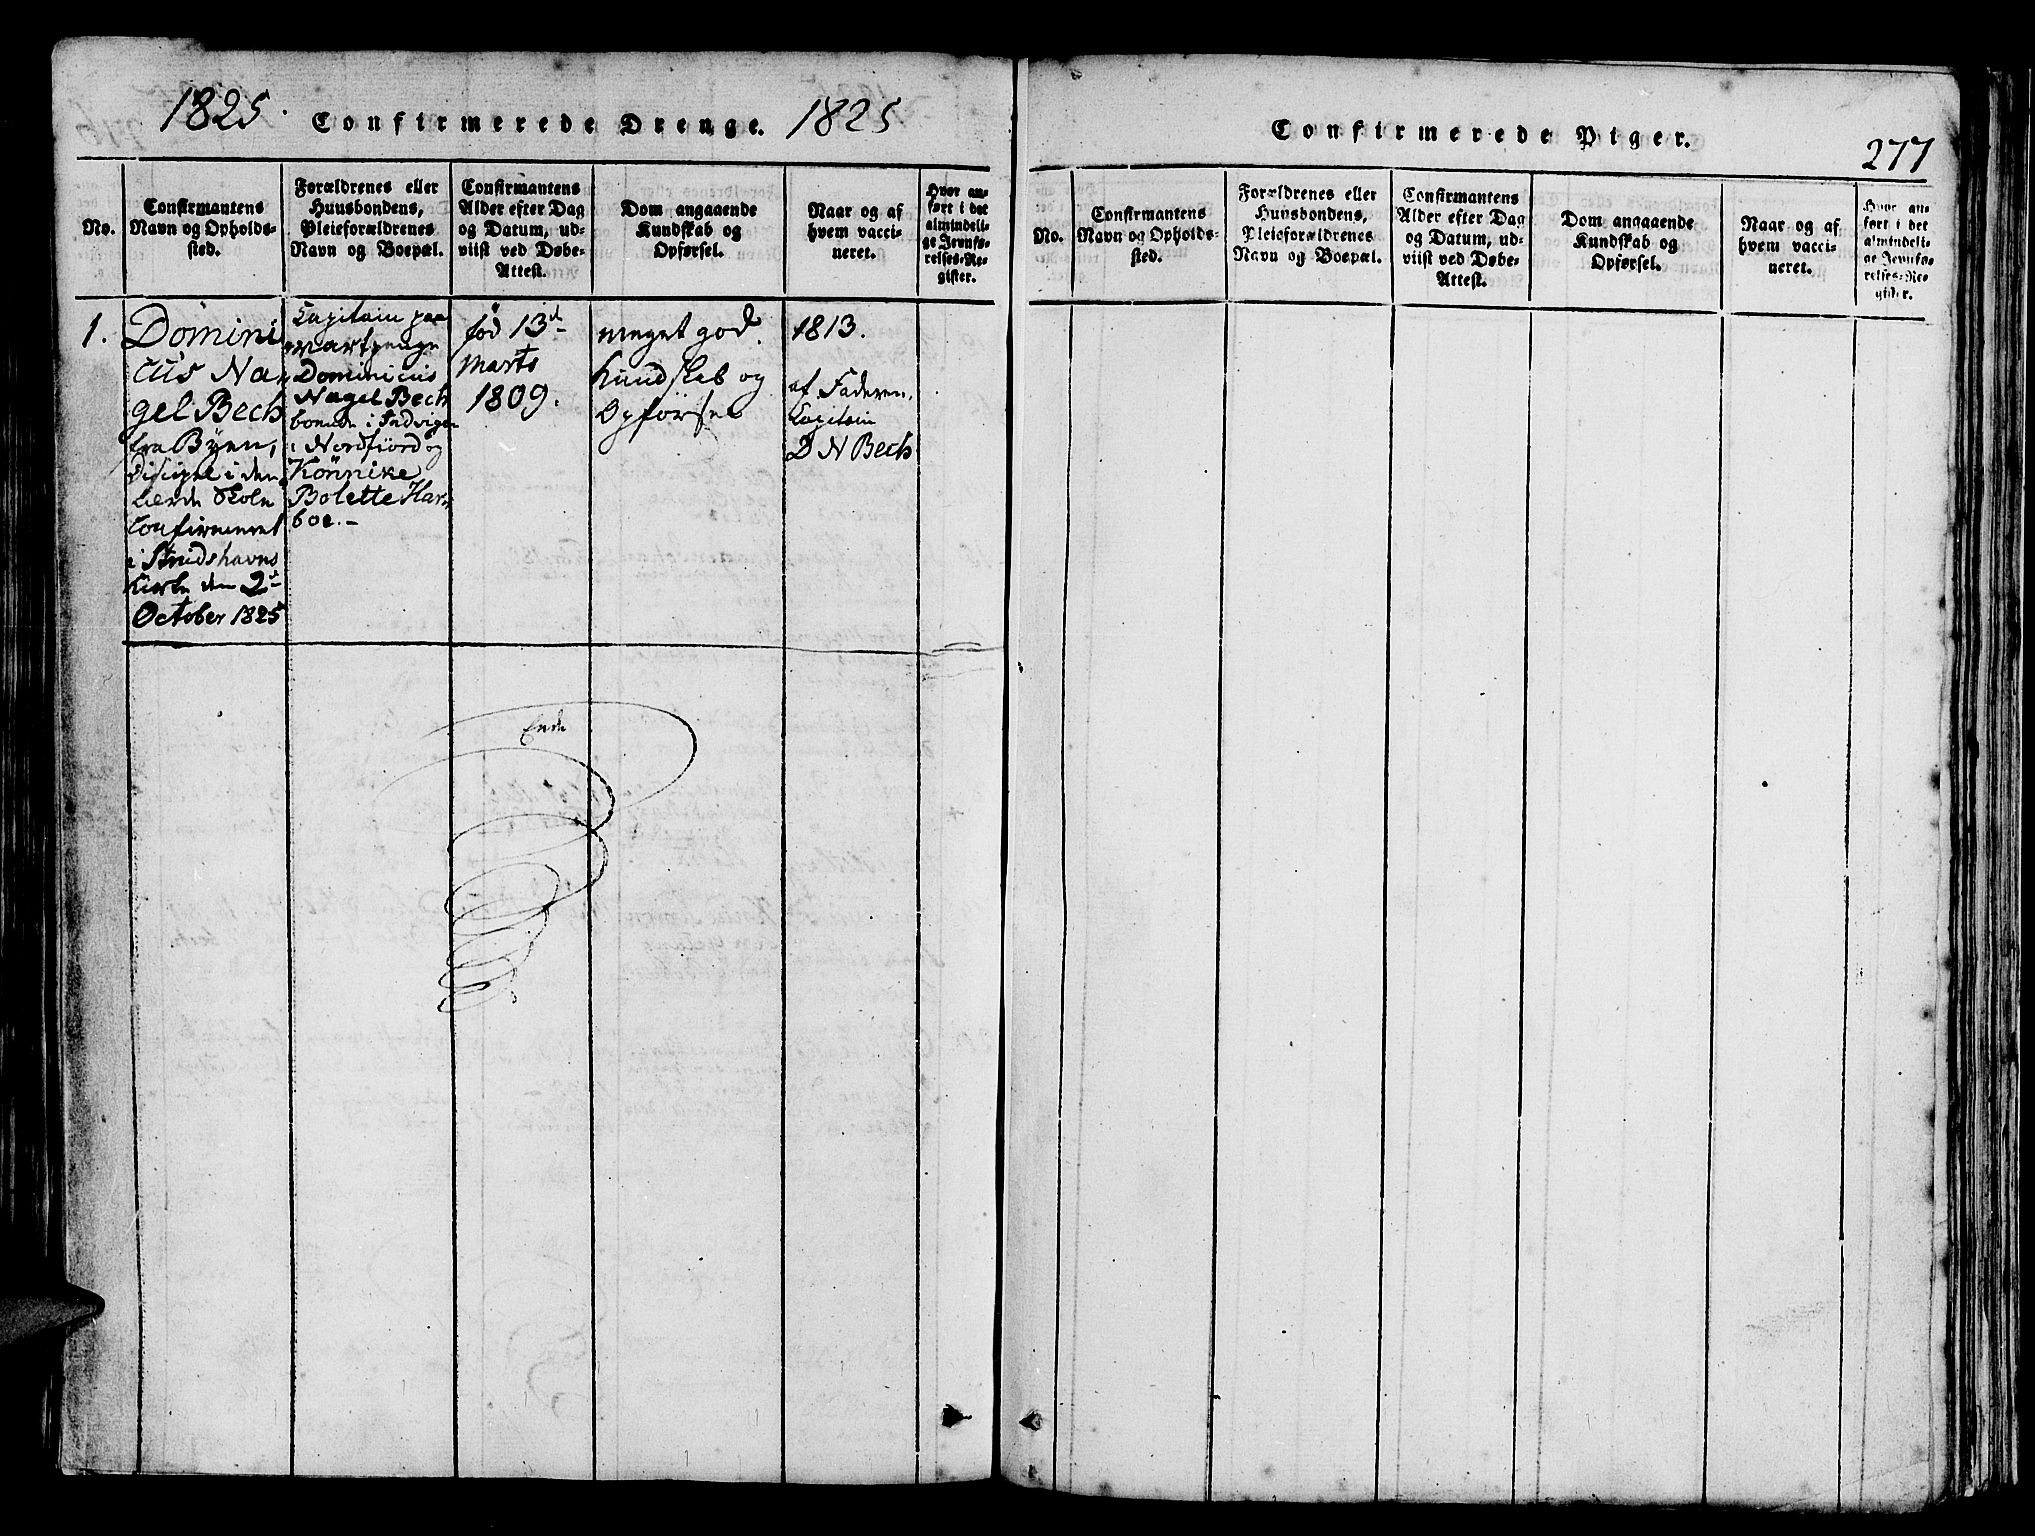 1825. Confirmerede Drenge. 1825
No.
Confirmantens
Navn og Opholds-
sted.
Forældrenes eller
Huusbondens,
Pleieforældrenes
Navn og Boepæl.
Confirmantens
Alder efter Dag
og Datum, ud-
viist ved Døbe-
Attest.
Dom angaaende
Kundskab og
Opførsel.
Naar og af
hvem vacci-
neret.
Hvor an-
ført i det
almindeli-
ge Jevnfø-
relses-Re-
gister.
1.
Domini
cus Na-
gel Bech
fra Byen,
Discipel i den
lærde Skole
Confirmeret
i
Kirke den 2d
October 1825
Capitain paa
Vartpenge
Dominicus
Nagel Bech
boende i Indvigen
i Nordfiord og
Könnike
Bolette Har-
boe.-
fød 13d
Marts
1809.
meget god
Kundskab og
Opførsel
1813.
af Faderen,
Capitain
D N Bech
Ende
Confirmerede Piger.
277
No.
Confirmantens
Navn og Opholds-
sted.
Forældrenes eller
Huusbondens,
Pleieforældrenes
Navn og Boepæl.
Confirmantens
Alder efter Dag
og Datum, ud-
viist ved Døbe-
Attest.
Dom angaaende
Kundskab og
Opførsel.
Naar og af
hvem vacci-
neret.
Hvor an-
ført i det
almindeli-
ge Jevnfø-
relses-Re-
gister.